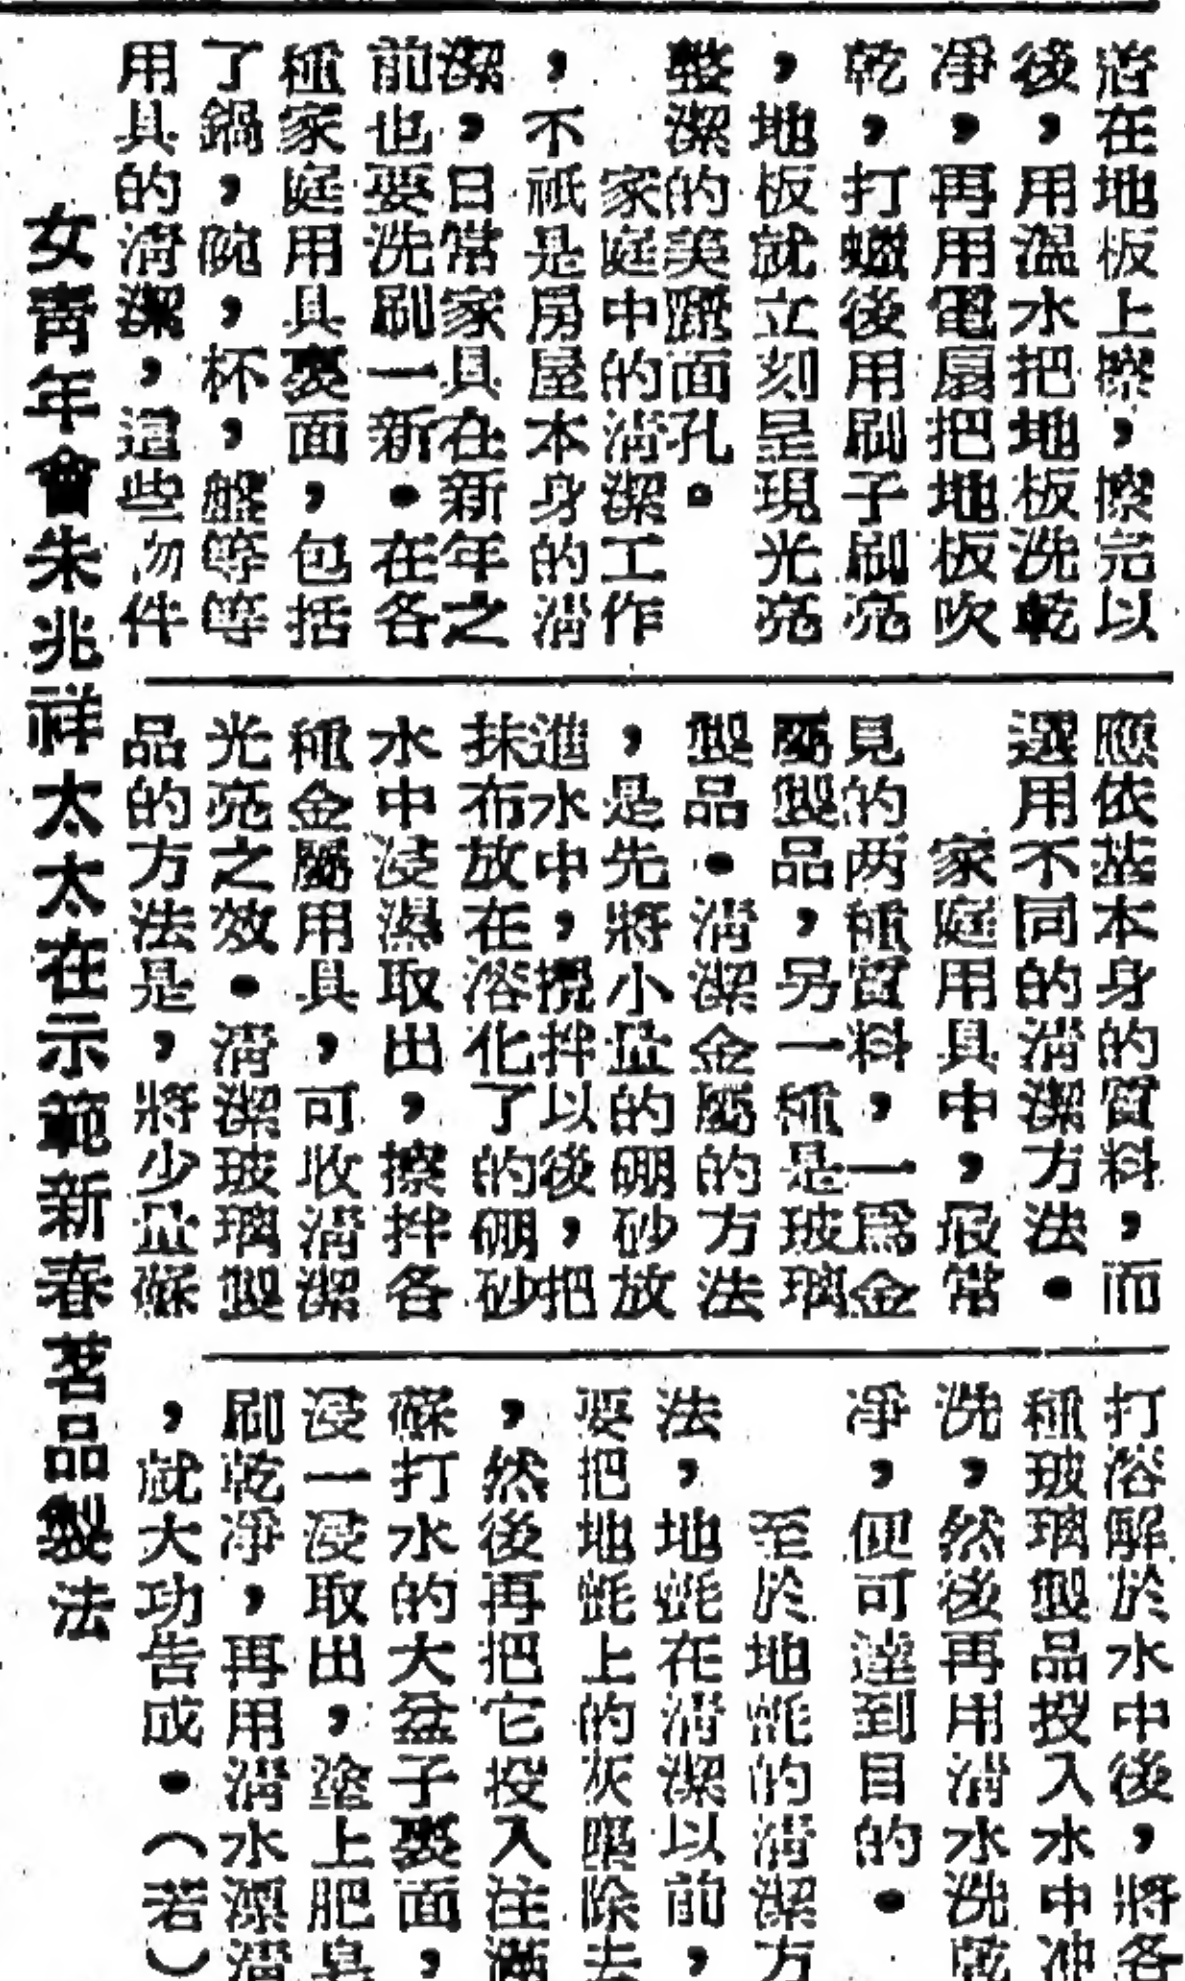 着在地板上擦，擦完以
後，用溫水把地板洗乾
淨，再用電扇把地板吹
乾，打蠟後用刷子刷亮
，地板就立刻呈現光亮
整潔的美麗面孔。
家庭中的清潔工作
，不祇是房屋本身的清
潔，日常家具在新年之
前也要洗刷一新．在各
種家庭用具裏面，包括
了鍋，碗，杯，盤等等
用具的清潔，這些物件
應依基本身的質料，而
選用不同的清潔方法．
家庭用具中，最常
見的两種質料，一爲金
屬製品，另一種是玻璃
製品．清潔金屬的方法
，是先將小量的硼砂放
進水中，攪拌以後，把
抹布放在溶化了的硼砂
水中浸濕取出，擦拌各
種金屬用具，可收清潔
光亮之效．清潔玻璃製
品的方法是，將少量蘇
打溶解於水中後，將各
種玻璃製品投入水中冲
洗，然後再用清水洗乾
凈，便可達到目的．
至於地毯的清潔方
法，地毯在清潔以前，
要把地毯上的灰塵除去
，然後再把它投入注滿
蘇打水的大盆子裏面，
浸一浸取出，塗上肥皂
刷乾淨，再用清水漂清
，就大功告成．（若）
女青年會朱兆祥太太在示範新春茗品製法